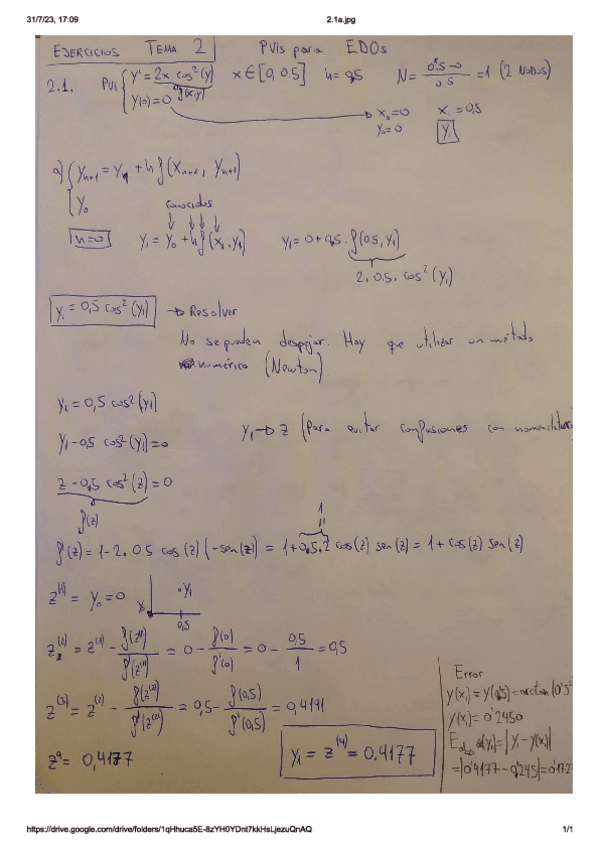 31/7/23, 17:09 2.1a.jpg
EJERCICIOS TEMA 2 PVIs para EDOs
2.1. PVI { y' = 2x cos²(y) x∈[0, 0.5] h = 0,5 N = (0'5-0)/0.5 = 1 (2 NODOS)
y(0) = 0 f(x,y)
x₀=0 x₁=0,5
y₀=0 y₁
a) { yₙ₊₁ = yₙ + h f(xₙ₊₁, yₙ₊₁)
y₀ conocidos
n=0 y₁ = y₀ + h f(x₁, y₁) y₁ = 0 + 0,5 · f(0.5, y₁)
2 · 0.5 · cos²(y₁)
y₁ = 0,5 cos²(y₁) → Resolver
No se pueden despejar. Hay que utilizar un método
numérico (Newton)
y₁ = 0,5 cos²(y₁)
y₁ - 0,5 cos²(y₁) = 0 y₁ → z (Para evitar confusiones con nomenclatura
z - 0,5 cos²(z) = 0
f(z)
1
f'(z) = 1 - 2 · 0.5 cos(z) (-sen(z)) = 1 + 0,5 · 2 cos(z) sen(z) = 1 + cos(z) sen(z)
z⁽¹⁾ = y₀ = 0 y₀ · y₁
0,5
z⁽²⁾ = z⁽¹⁾ - f(z⁽¹⁾)/f'(z⁽¹⁾) = 0 - f(0)/f'(0) = 0 - 0,5/1 = 0,5
z⁽³⁾ = z⁽²⁾ - f(z⁽²⁾)/f'(z⁽²⁾) = 0,5 - f(0,5)/f'(0,5) = 0,4191
z⁴ = 0,4177 y₁ = z⁽⁴⁾ = 0.4177
Error
y(x₁) = y(0,5) = arctan(0'5²
y(x₁) = 0'2450
= |y₁ - y(x₁)|
= |0'4177 - 0,245| = 0'172
https://drive.google.com/drive/folders/1qHhuca5E-8zYH0YDnt7kkHsLjezuQnAQ 1/1